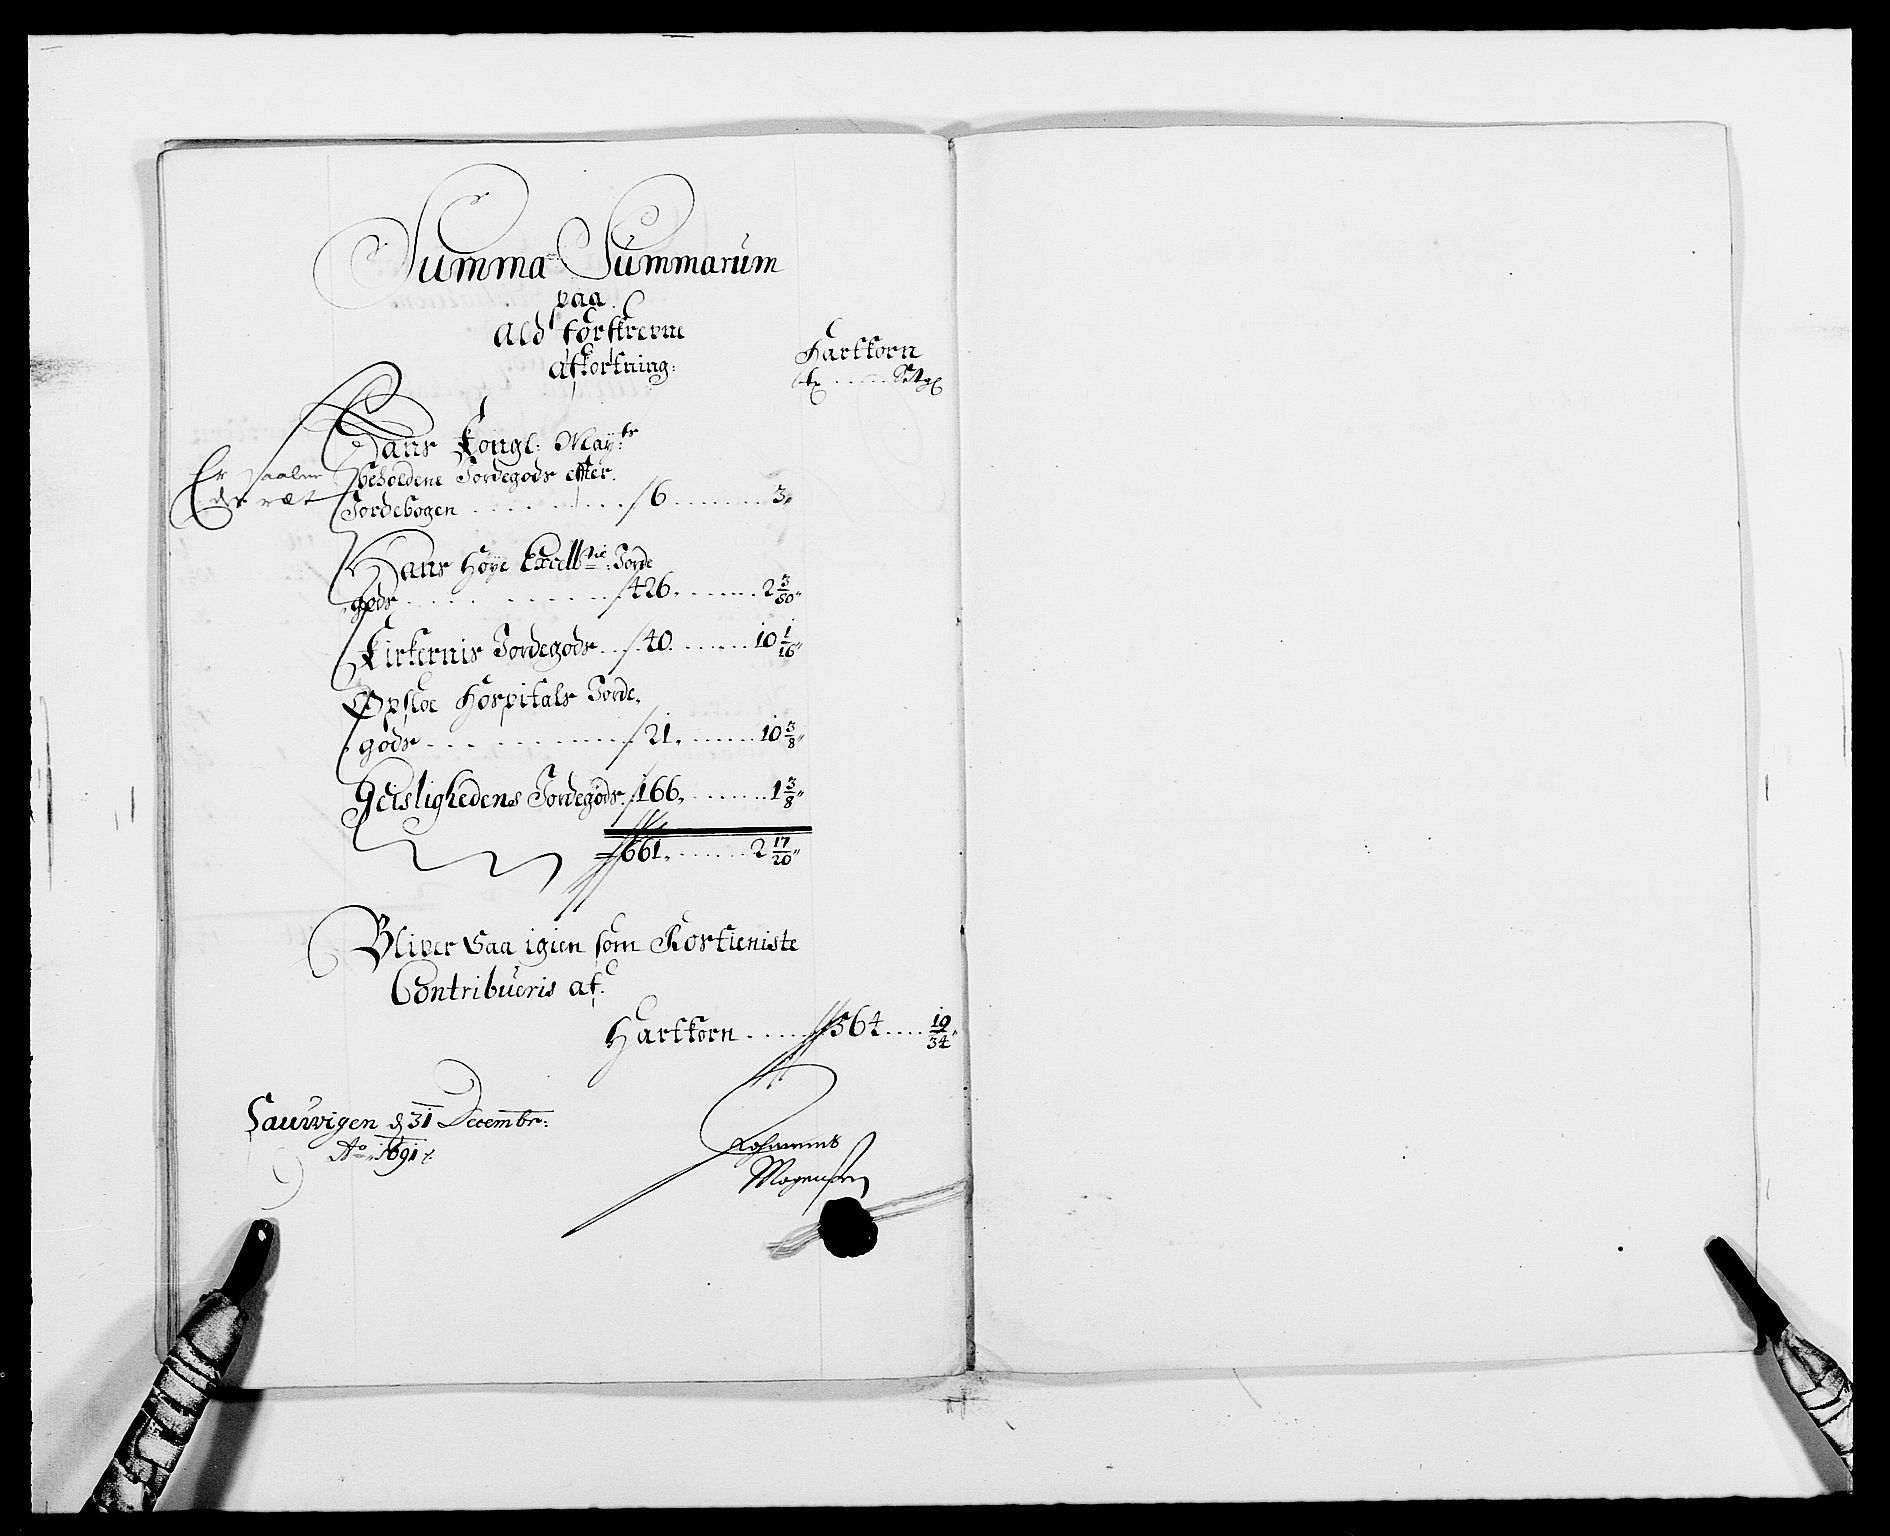 Summa Summarum
paa
Ald forskrevne
afkortning:
Hartkorn
Hans Kongl: Mayts
beholdene Jordegods efter
Jordebogen 6 3
Er saaln
des ræt
Hans Høye Excellnie: Jorde
gods 426 2 3/80
Kirkernis Jordegods 40 10 1/16
Opsloe Hospitals Jorde
gods 21 10 3/8
Geislighedens Jordegods 166 1 3/8
661 2 17/20
Bliver saa igien som Rostieniste
Contribueris af
Hartkorn 564 19/34
Lauwigen d 31 Decembr:
Ao 1691
Johannes
Mogensen